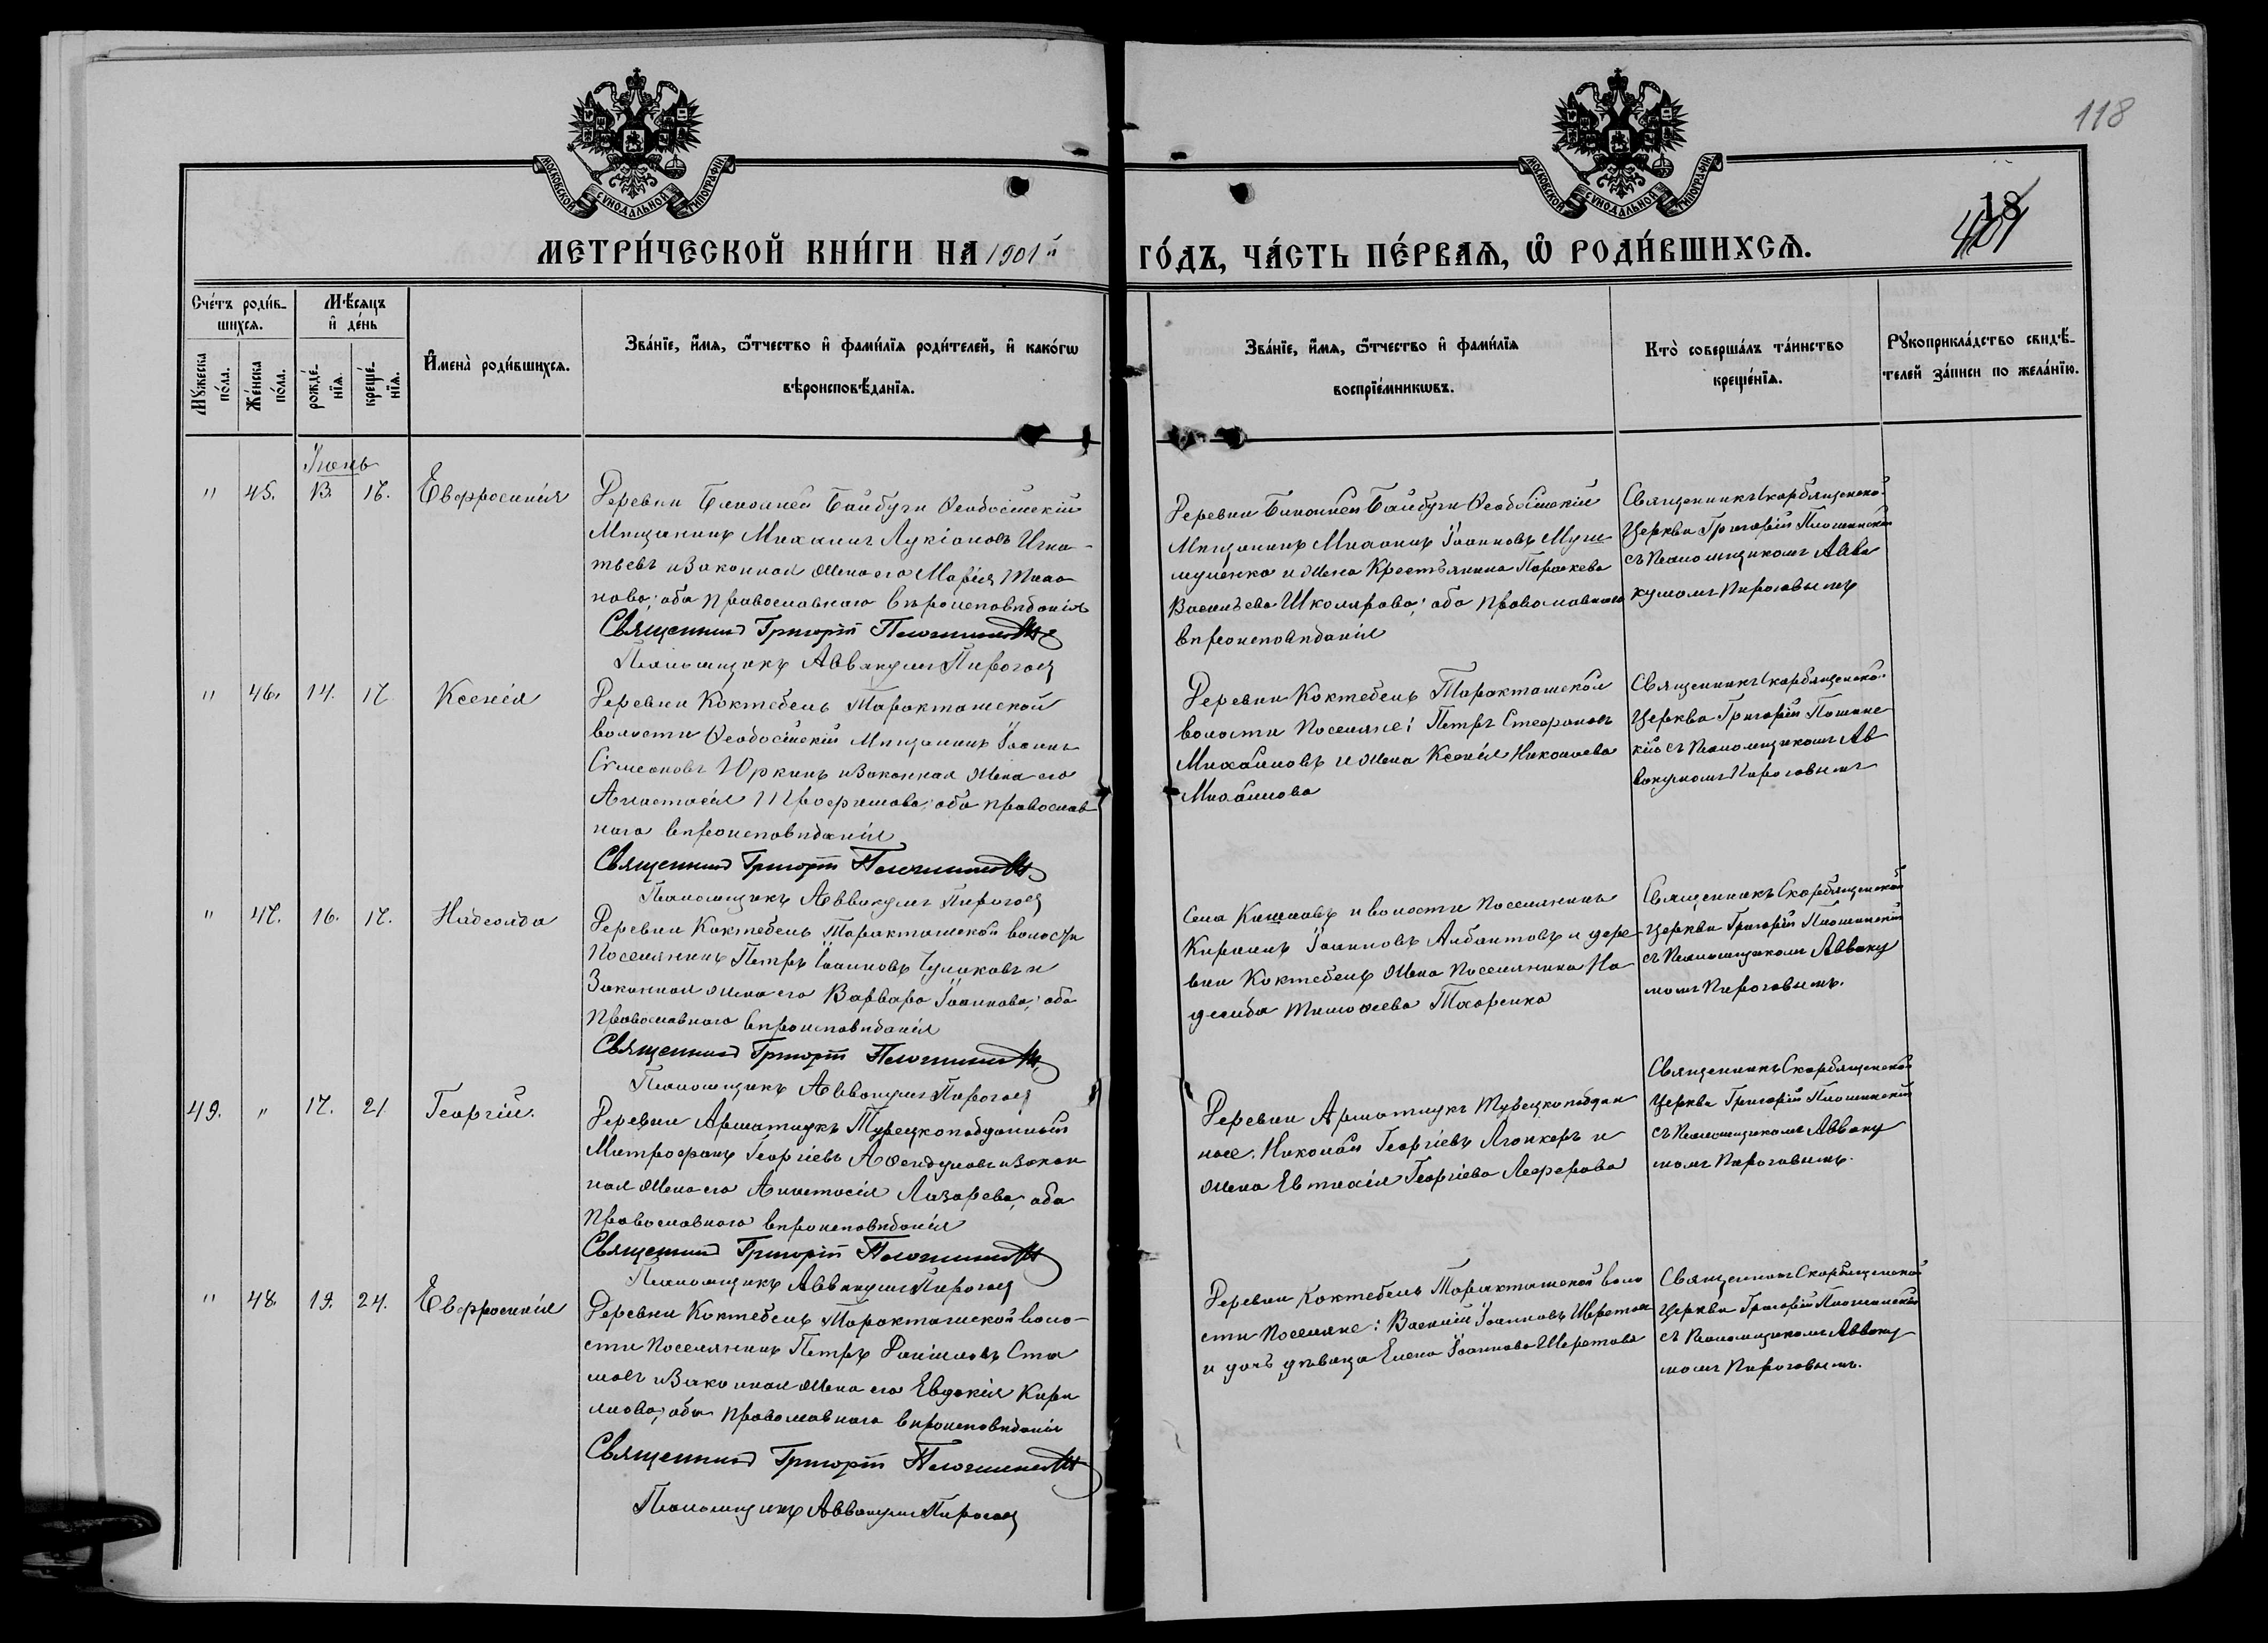 118
18
401
МОСКОВСКОЙ СУНОДАЛЬНОЙ ТИПОГРАФІИ
МОСКОВСКОЙ СУНОДАЛЬНОЙ ТИПОГРАФІИ
МЕТРИ́ЧЕСКОЙ КНИ́ГИ НА 1901й ГО́ДЪ, ЧА́СТЬ ПЕ́РВАѦ, Ѡ РОДИ́ВШИХСѦ.
Сче́тъ роди́в-
шихсѧ.
Мѣ́сѧцъ
и҆ де́нь
Мꙋ́жеска по́ла.
Же́нска по́ла.
рожде́-нїѧ.
креще́-нїѧ.
И҆мена̀ роди́вшихсѧ.
Зва́нїе, и҆́мѧ, ѻ҆́тчество и҆ фами́лїѧ роди́телей, и҆ како́гѡ
вѣроисповѣ́данїѧ.
Зва́нїе, и҆́мѧ, ѻ҆́тчество и҆ фами́лїѧ
воспрїе́мникѡвъ.
Кто̀ соверша́лъ та́инство
креще́нїѧ.
Рꙋкоприкла́дство свидѣ́-
телей за́писи по жела́нїю.
Іюнь
" 45. 13. 16. Евфросинія
Деревни Ближней Байбуги Ѳеодосійскій
Мѣщанинъ Михаилъ Лукіановъ Игна-
тьевъ и Законная жена его Марія Тихо
нова; оба православнаго вѣроисповѣданія
Священникъ Григорій
Псаломщикъ Аввакумъ Пироговъ
Деревни Ближней Байбуги Ѳеодосійскій
Мѣщанинъ Михаилъ Іоанновъ
и жена Крестьянина Параскева
Васильева Школярова; оба православнаго
вѣроисповѣданія
Священникъ Скорбященской
Церкви Григорій
съ Псаломщикомъ Авва
кумомъ Пироговымъ
" 46. 14. 17 Ксенія
Деревни Коктебель Таракташской
волости Ѳеодосійскій Мѣщанинъ Іоаннъ
Сѵмеоновъ Юркинъ и Законная жена его
Анастасія Трофимова; оба православ
наго вѣроисповѣданія
Священникъ Григорій
Псаломщикъ Аввакумъ Пироговъ
Деревни Коктебель Таракташской
волости Поселяне: Петръ Стефановъ
Михайловъ и жена Ксенія Николаева
Михайлова
Священникъ Скорбященской
Церкви Григорій
кій съ Псаломщикомъ Ав
вакумомъ Пироговымъ
" 47. 16. 17. Надежда
Деревни Коктебель Таракташской волости
Поселянинъ Петръ Іоанновъ Чумаковъ и
Законная жена его Варвара Іоаннова; оба
Православнаго вѣроисповѣданія
Священникъ Григорій
Псаломщикъ Аввакумъ Пироговъ
Села и волости Поселянинъ
Кириллъ Іоанновъ и дере
вни Коктебель жена Поселянина На
дежда Тимоѳеева
Священникъ Скорбященской
Церкви Григорій
съ Псаломщикомъ Авваку
момъ Пироговымъ.
49. " 17. 21 Георгій.
Деревни Арматлукъ Турецкоподданный
Митрофанъ Георгіевъ и Закон
ная жена его Анастасія Лазарева; оба
Православнаго вѣроисповѣданія
Священникъ Григорій
Псаломщикъ Аввакумъ Пироговъ
Деревни Арматлукъ Турецкоподдан
ные: Николай Георгіевъ и
жена Евтихія Георгіева
Священникъ Скорбященской
Церкви Григорій
съ Псаломщикомъ Авваку
момъ Пироговымъ.
" 48. 19. 24. Евфросинія
Деревни Коктебель Таракташской воло-
сти Поселянинъ Петръ Даніиловъ Ста
и Законная жена его Евдокія Кири
лова; оба православнаго вѣроисповѣданія
Священникъ Григорій
Псаломщикъ Аввакумъ Пироговъ
Деревни Коктебель Таракташской воло
сти Поселяне: Василій Іоанновъ
и дочь дѣвица Елена Іоаннова
Священникъ Скорбященской
Церкви Григорій
съ Псаломщикомъ Авваку
момъ Пироговымъ.